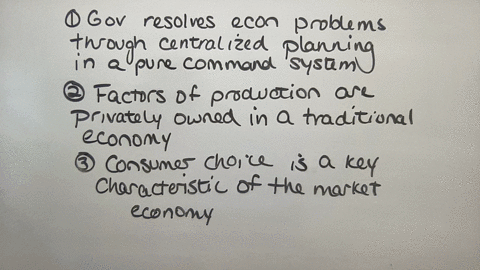 ① Gov resolves econ problems
through centralized planning
in a pure command system
② Factors of production are
privately owned in a traditional
economy
③ Consumer choice is a key
characteristic of the market
economy